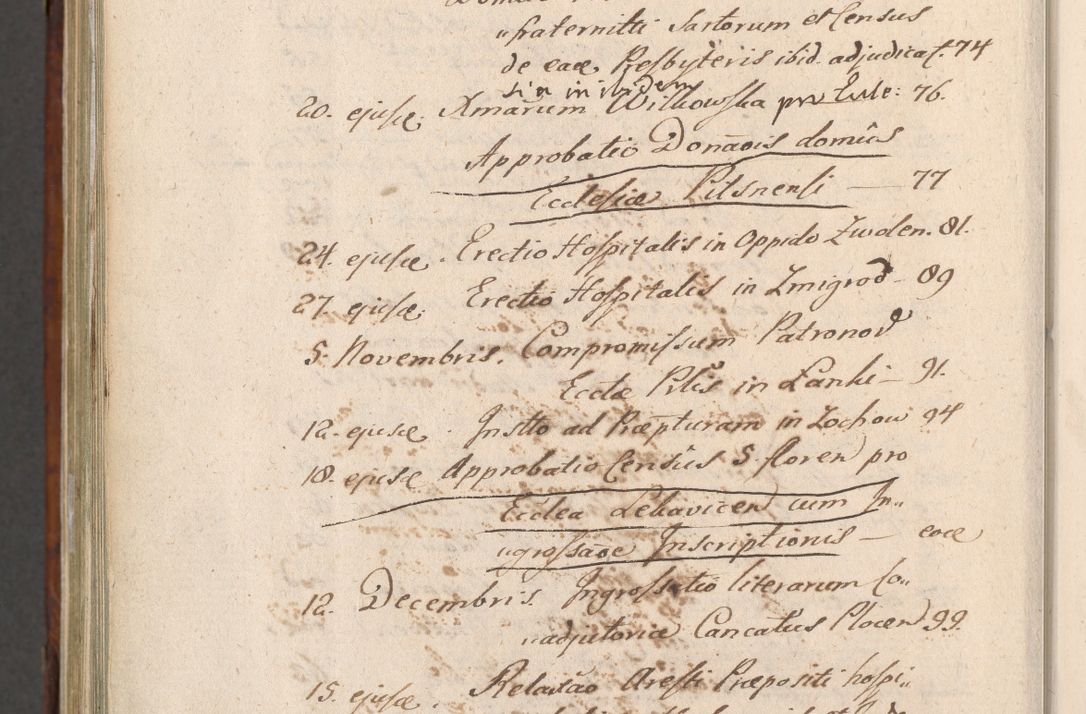 „fraternitti Sartorum et Census
de eadē Presbyteris ibid. adjudicat. 74
in ibidem
20. ejusdē. Xmarum Witkowska pro Eccle: 76.
Approbatio Donāōis domûs
Ecclesiæ Pilsnensi — 77
24. ejusdē. Erectio Hospitalis in Oppido Zwolen. 81.
27. ejusdē. Erectio Hospitalis in Zmigrod – 89
5. Novembris. Compromissum Patronor̄
Ecclæ Plis in Łanki – 91.
12. ejusdē. Instto ad Præpturam in Zochow 94
18. ejusdē Approbatio Censûs 5 floren pro
Ecclea Lelavicen cum In„
„grossāōe Inscriptionis — eadē
12. Decembris. Ingrossatio literarum Co„
„adjutoriæ Cancatus Plocen 99.
15. ejusdē. Relatāo Aresti Præpositi hospi„